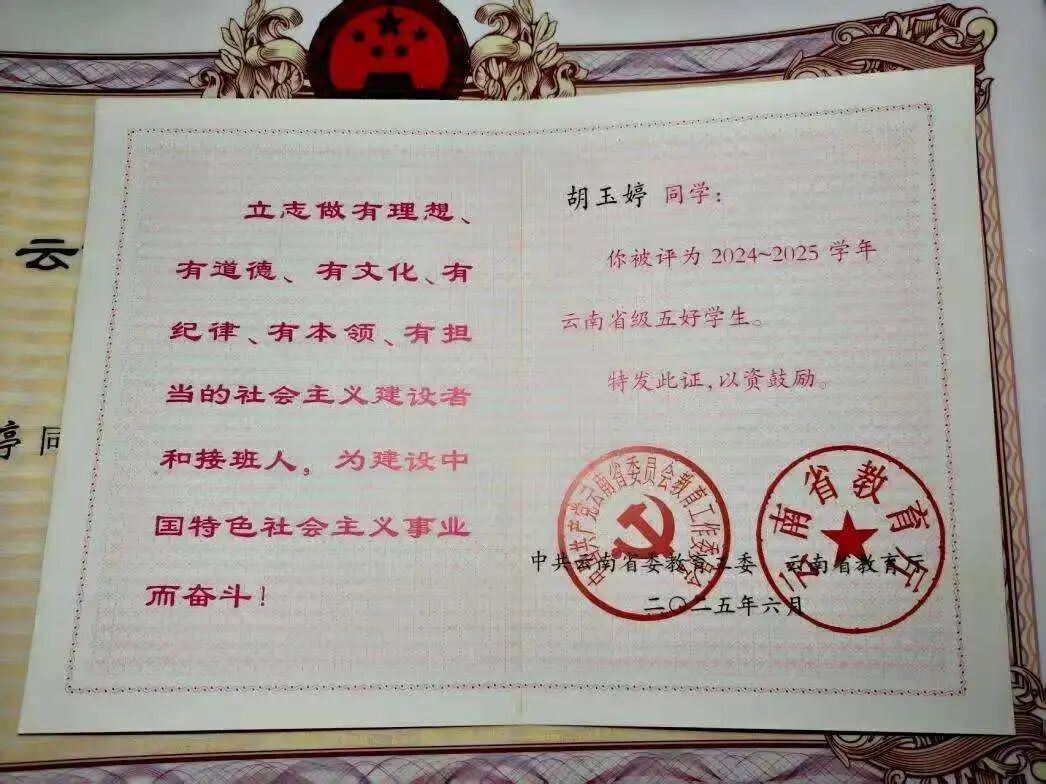 云
婷同
立志做有理想、
有道德、有文化、有
纪律、有本领、有担
当的社会主义建设者
和接班人，为建设中
国特色社会主义事业
而奋斗！
胡玉婷 同学：
你被评为 2024~2025 学年
云南省级五好学生。
特发此证，以资鼓励。
中国共产党云南省委员会教育工作委员会
云南省教育厅
中共云南省委教育工委 云南省教育厅
二〇二五年六月